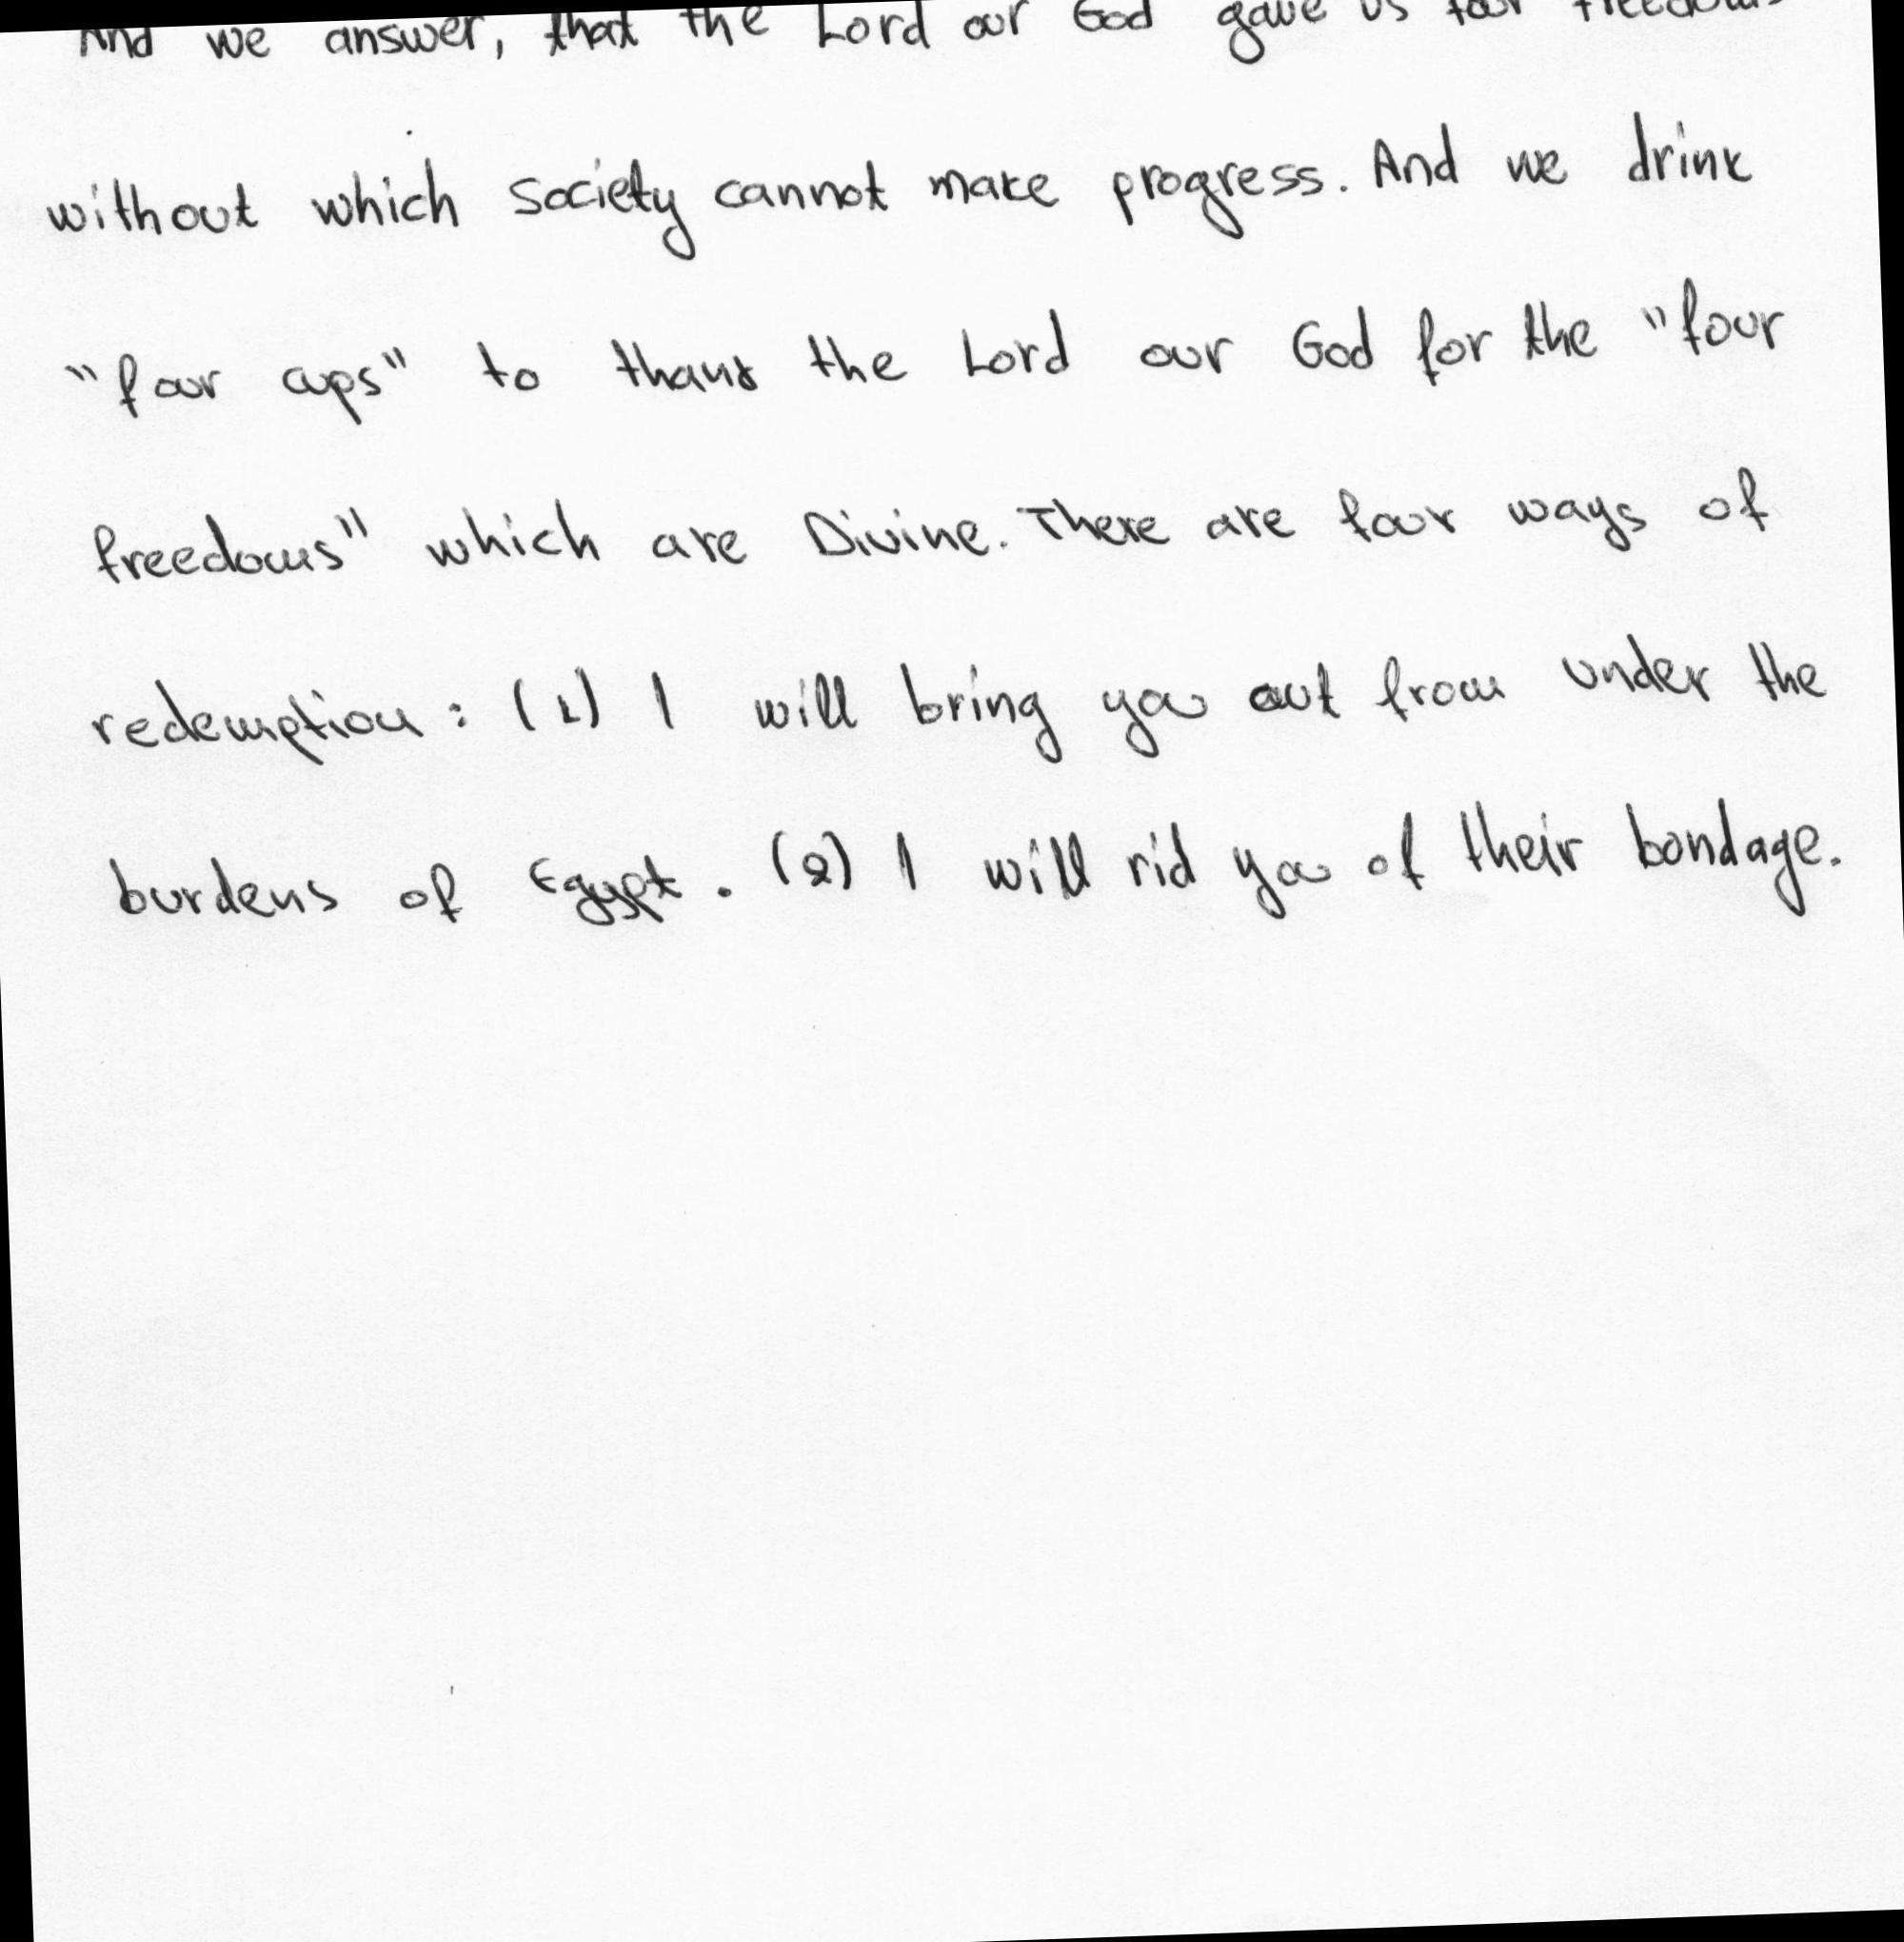 And we answer, that the Lord our God gave us four freedoms
without which Society cannot make progress. And we drink
"four cups" to thank the Lord our God for the "four
freedoms" which are Divine. There are four ways of
redemption : (1) I will bring you out from under the
burdens of Egypt. (2) I will rid you of their bondage.